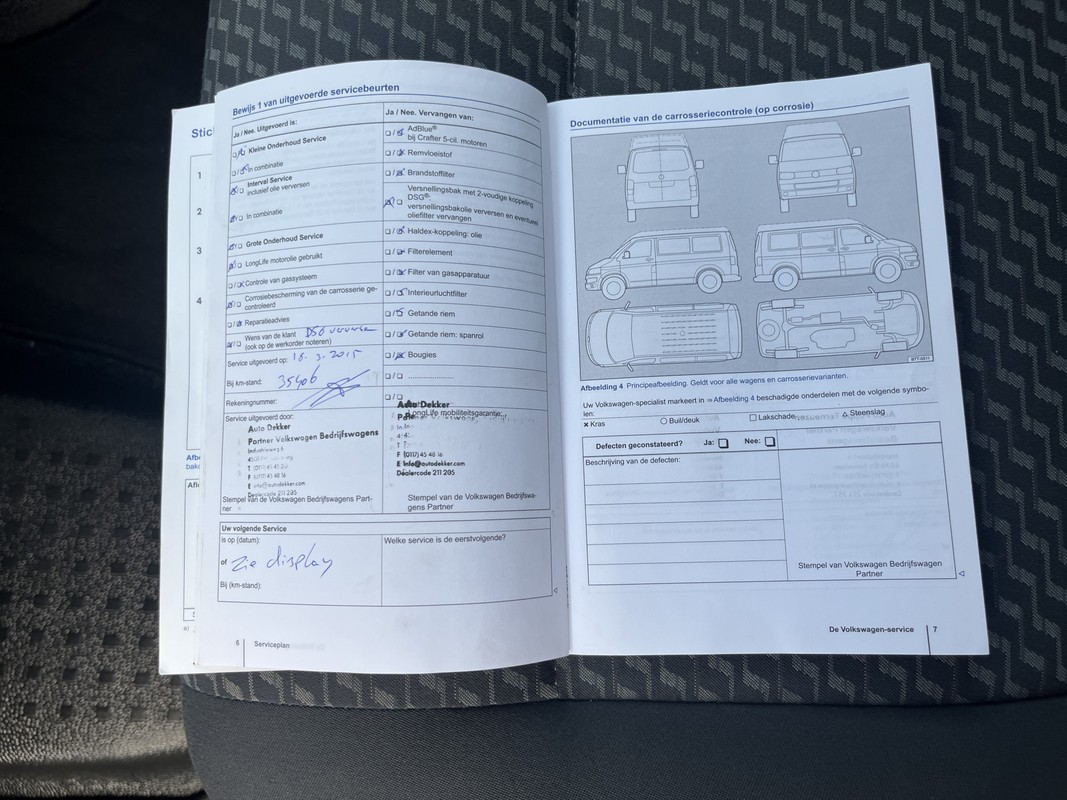 Stic
1
2
3
4
Bewijs 1 van uitgevoerde servicebeurten
Ja / Nee. Uitgevoerd is:
Kleine Onderhoud Service
In combinatie
Interval Service
inclusief olie verversen
In combinatie
Grote Onderhoud Service
LongLife motorolie gebruikt
Controle van gassysteem
Corrosiebescherming van de carrosserie ge-
controleerd
Reparatieadvies
Wens van de klant DSG verversen
(ook op de werkorder noteren)
Service uitgevoerd op: 18.3.2015
Bij km-stand: 35406
Rekeningnummer:
Service uitgevoerd door:
Auto Dekker
Partner Volkswagen Bedrijfswagens
E info@autodekker.com
Dealercode 211 205
Stempel van de Volkswagen Bedrijfswagens Part-
ner
Ja / Nee. Vervangen van:
AdBlue®
bij Crafter 5-cil. motoren
Remvloeistof
Brandstoffilter
Versnellingsbak met 2-voudige koppeling
DSG®:
versnellingsbakolie verversen en eventueel
oliefilter vervangen
Haldex-koppeling: olie
Filterelement
Filter van gasapparatuur
Interieurluchtfilter
Getande riem
Getande riem: spanrol
Bougies
Auto Dekker
LongLife mobiliteitsgarantie:
F (0117) 45 48 16
E info@autodekker.com
Dealercode 211 205
Stempel van de Volkswagen Bedrijfswa-
gens Partner
Uw volgende Service
is op (datum):
of zie display
Bij (km-stand):
Welke service is de eerstvolgende?
6 Serviceplan
Documentatie van de carrosseriecontrole (op corrosie)
Afbeelding 4 Principeafbeelding. Geldt voor alle wagens en carrosserievarianten.
Uw Volkswagen-specialist markeert in ⇒ Afbeelding 4 beschadigde onderdelen met de volgende symbo-
len:
× Kras ○ Buil/deuk □ Lakschade △ Steenslag
Defecten geconstateerd? Ja: Nee:
Beschrijving van de defecten:
Stempel van Volkswagen Bedrijfswagen
Partner
De Volkswagen-service 7